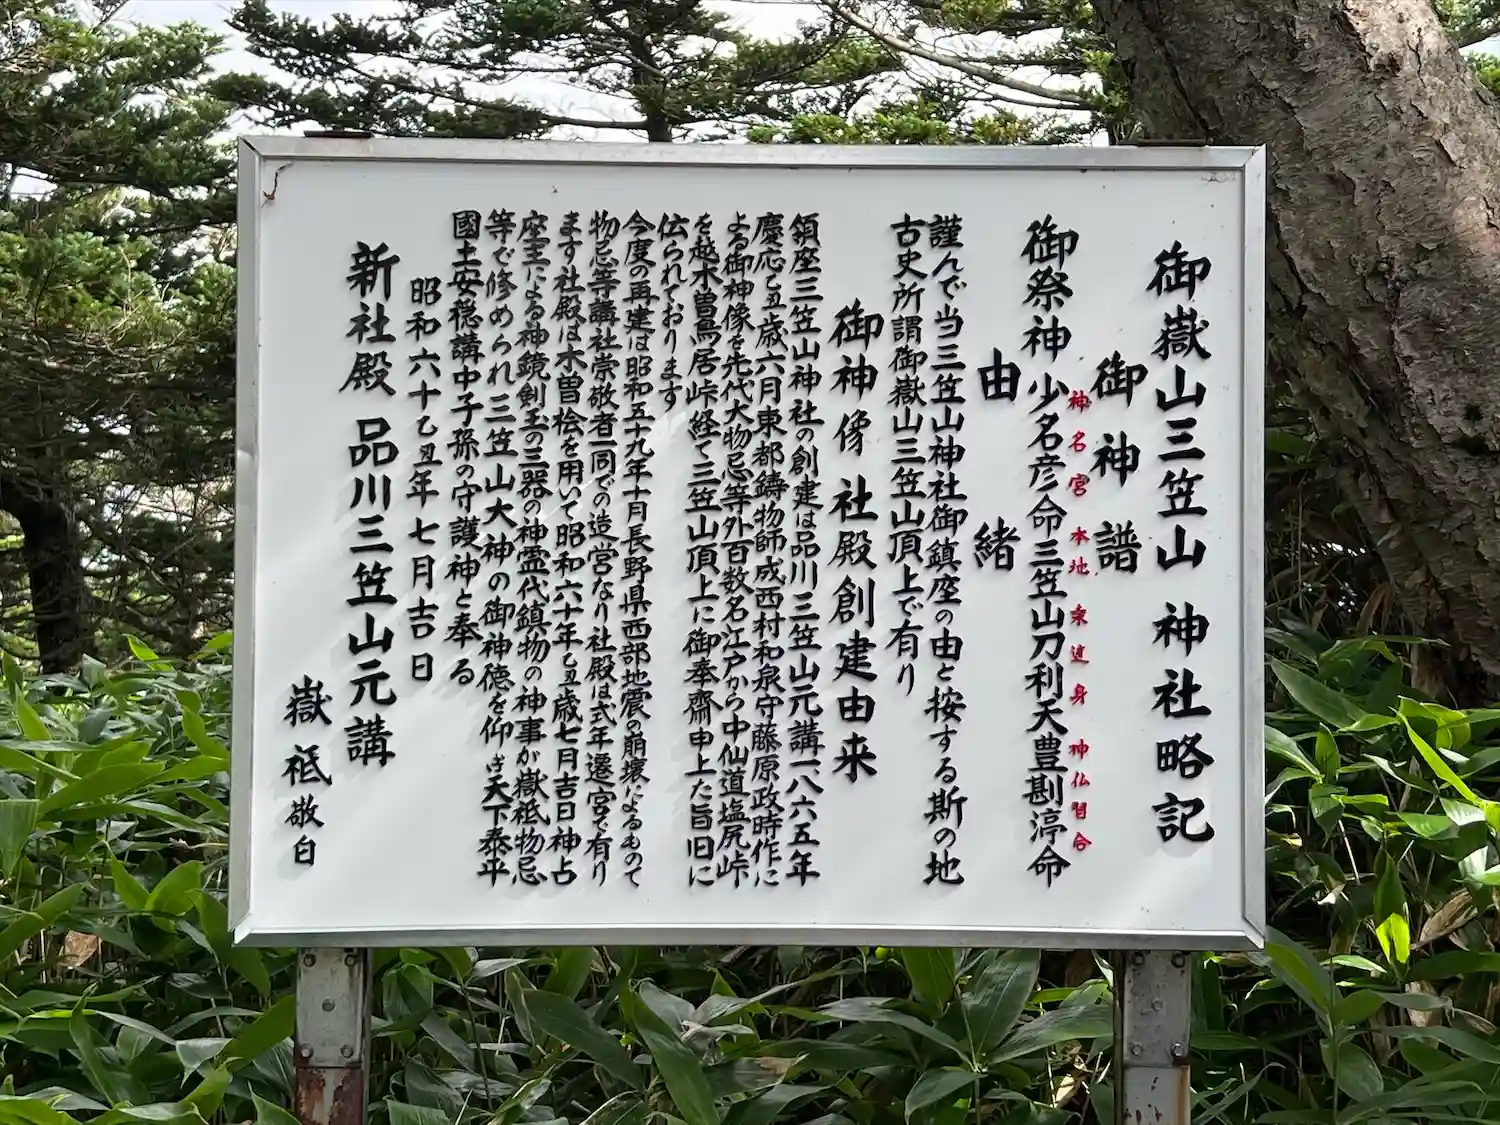 御嶽山三笠山 神社略記
御神譜
神名宮 本地 垂迹身 神仏習合
御祭神 少名彦命三笠山刀利天豊斟渟命
由緒
謹んで当三笠山神社御鎮座の由と按する斯の地
古史所謂御嶽山三笠山頂上で有り
御神像 社殿創建由来
領座三笠山神社の創建は品川三笠山元講一八六五年
慶応乙丑歳六月東都鋳物師成西村和泉守藤原政時作に
よる御神像を先代大物忌等外百数名江戸から中仙道塩尻峠
を越木曽鳥居峠経て三笠山頂上に御奉齋申上た旨旧に
伝られております
今度の再建は昭和五十九年十月長野県西部地震の崩壊によるもので
物忌等講社崇敬者一同での造営なり社殿は式年遷宮で有り
ます社殿は木曽桧を用いて昭和六十年乙丑歳七月吉日神占
座主による神鏡剣玉の三器の神霊代鎮物の神事が嶽祇物忌
等で修められ三笠山大神の御神徳を仰ぎ天下泰平
國土安穏講中子孫の守護神と奉る
昭和六十乙丑年七月吉日
新社殿 品川三笠山元講
嶽祇敬白